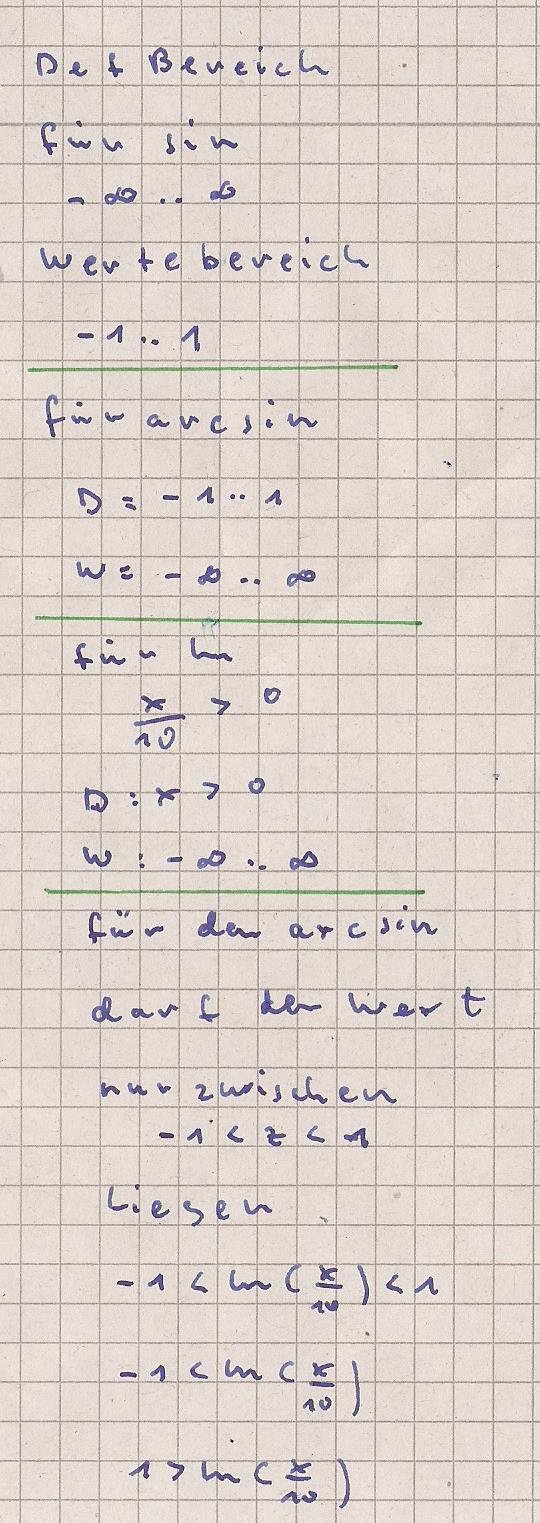 Def Bereich
für sin
- ∞ .. ∞
Wertebereich
- 1 .. 1
für arcsin
D = - 1 .. 1
W = - ∞ .. ∞
für ln
x/10 > 0
D : x > 0
W : - ∞ .. ∞
für den arcsin
darf der Wert
nur zwischen
- 1 < z < 1
Liegen
- 1 < ln ( x/10 ) < 1
- 1 < ln ( x/10 )
1 > ln ( x/10 )